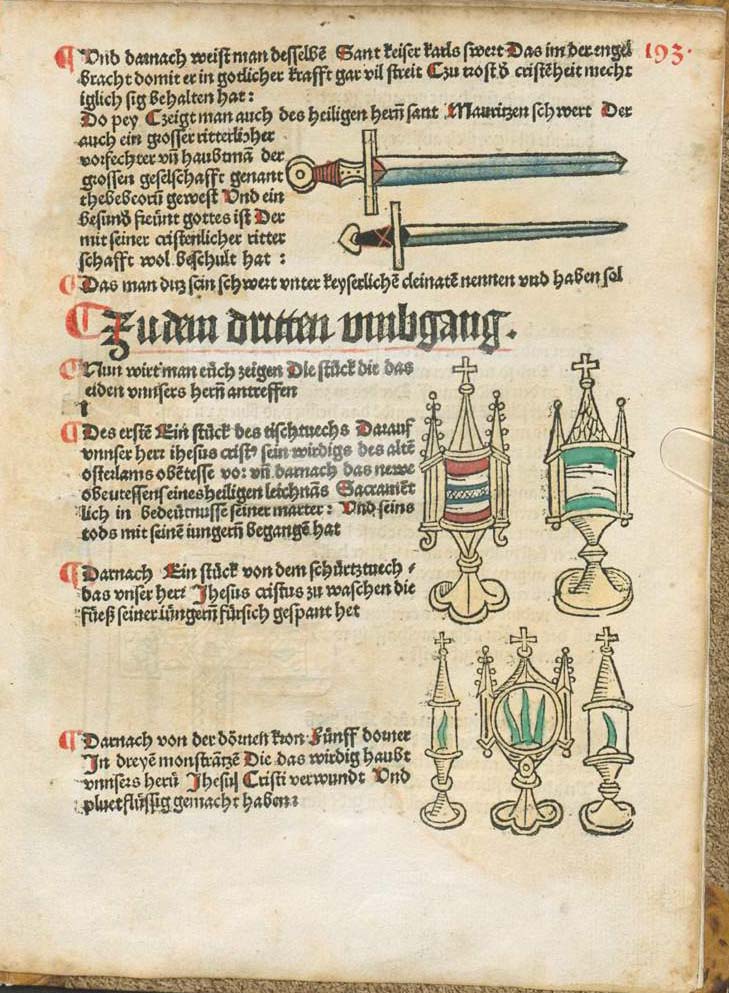 193.
Vnd darnach weist man desselbē Sant keiser karls swert Das im der engel
bracht domit er in gotlicher krafft gar vil streit Czu trost d̄ cristēheit mecht
iglich sig behalten hat:
Do pey Czeigt man auch des heiligen herñ sant Mauritzen schwert Der
auch ein grosser ritterlicher
vorfechter vñ haubtmā der
grossen geselschafft genant
thebeorū gewest Vnd ein
besund freünt gottes ist Der
mit seiner cristenlicher ritter
schafft wol beschult hat :
Das man ditz sein schwert vnter keyserlichē cleinatē nennen vnd haben sol
Zu dem dritten vmbgang.
Nun wirt man eüch zeigen Die stück die das
leiden vnnsers herñ antreffen
Des erstē Ein stück des tischtuechs Darauf
vnnser herr ihesus cristꝰ sein wirdigs des altē
osterlams obētesse vor: vñ darnach das newe
obentessen seines heiligen leichnās Sacramēt
lich in bedeütnusse seiner marter : Vnd seins
tods mit seinē iungerñ begangē hat
Darnach Ein stück von dem schürtztuech ⸗
das vnser herr Jhesus cristus zu waschen die
füeß seiner iüngerñ fürsich gespant het
Darnach von der dörnen kron Fünff dorner
In dreyē monstrātzē Die das wirdig haubt
vnnsers herñ Jhesu Cristi verwundt Vnd
pluetflüssig gemacht haben: